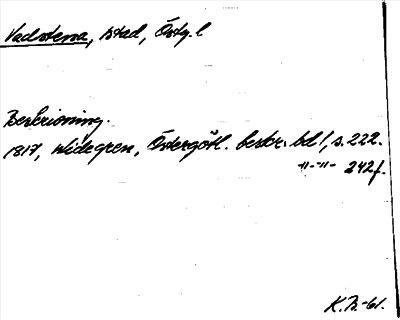 Vadstena, stad, Östg. l
Beskrivning.
1817, Widegren, Östergötl. beskr. bd 1, s. 222.
-"-"- 242f.
K.B.-61.